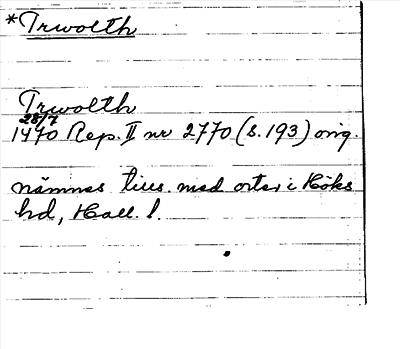 *Trwolth
Trwolth
28/7
1470 Rep. II nr 2770 (s. 193) orig.
nämnes tills. med orter i Höks
hd, Hall. l.